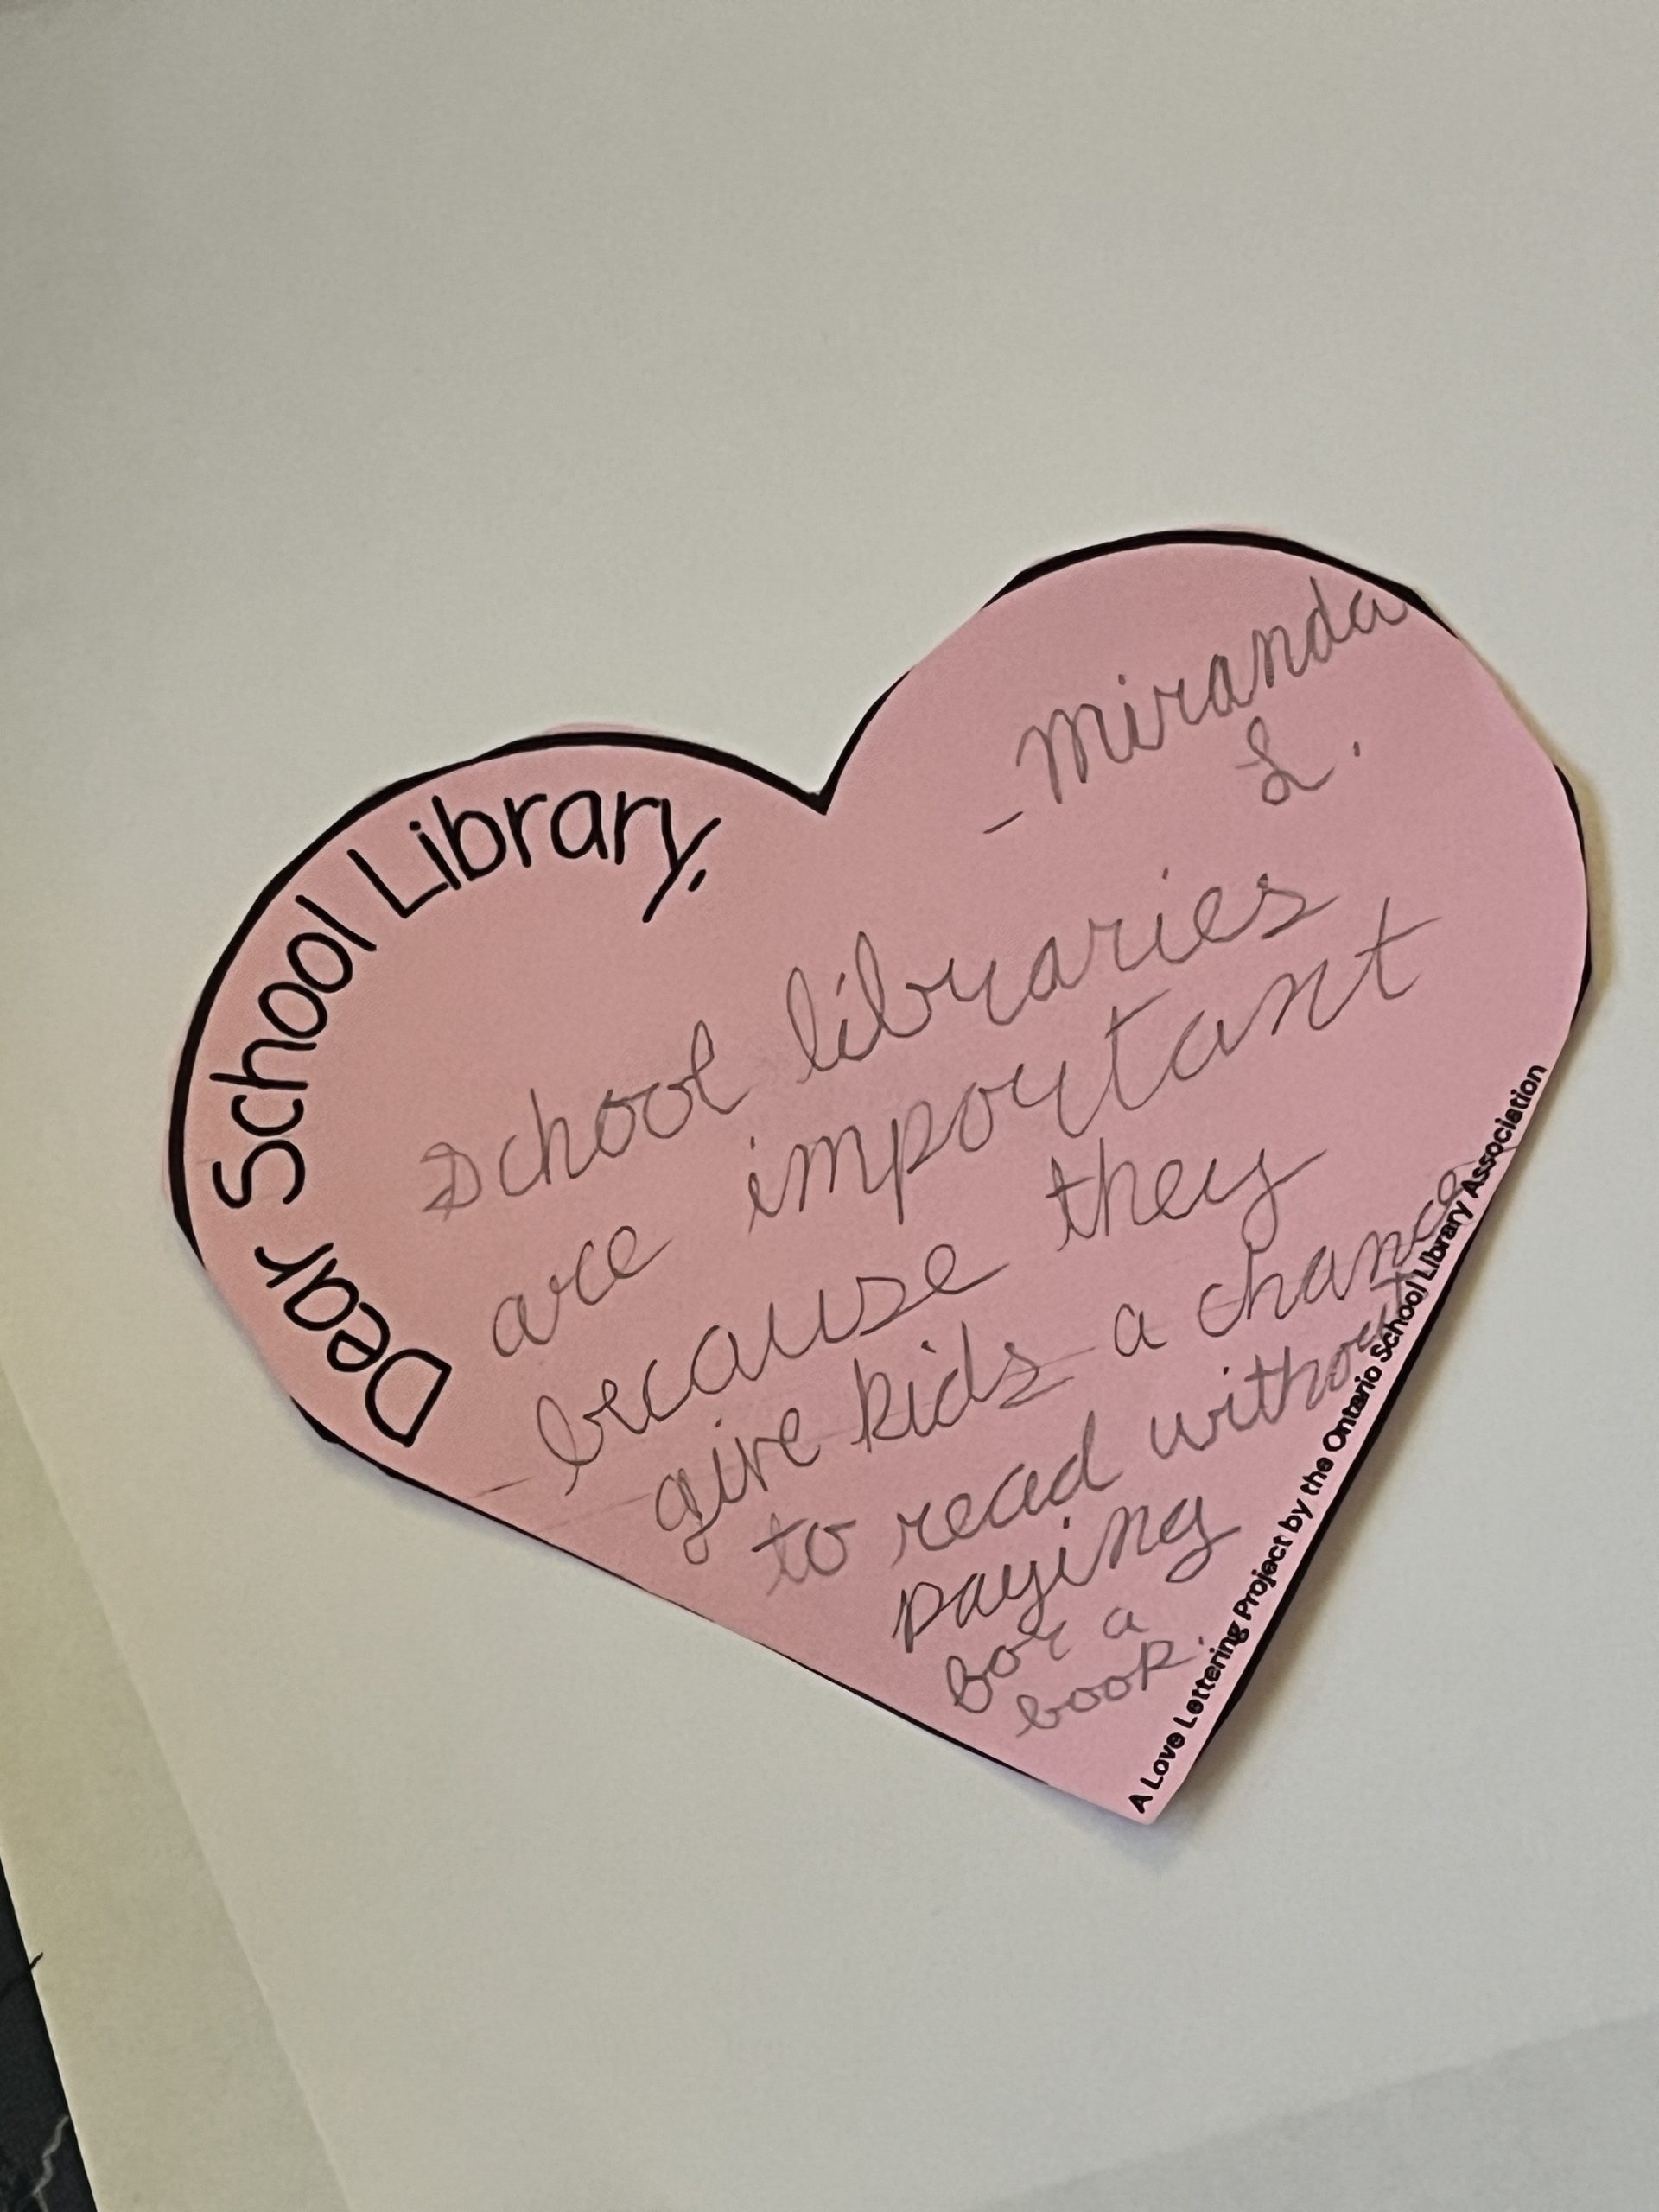 Dear School Library,
-Miranda
L.
School libraries
are important
because they
give kids a chance
to read without
paying
for a
book.
A Love Lettering Project by the Ontario School Library Association